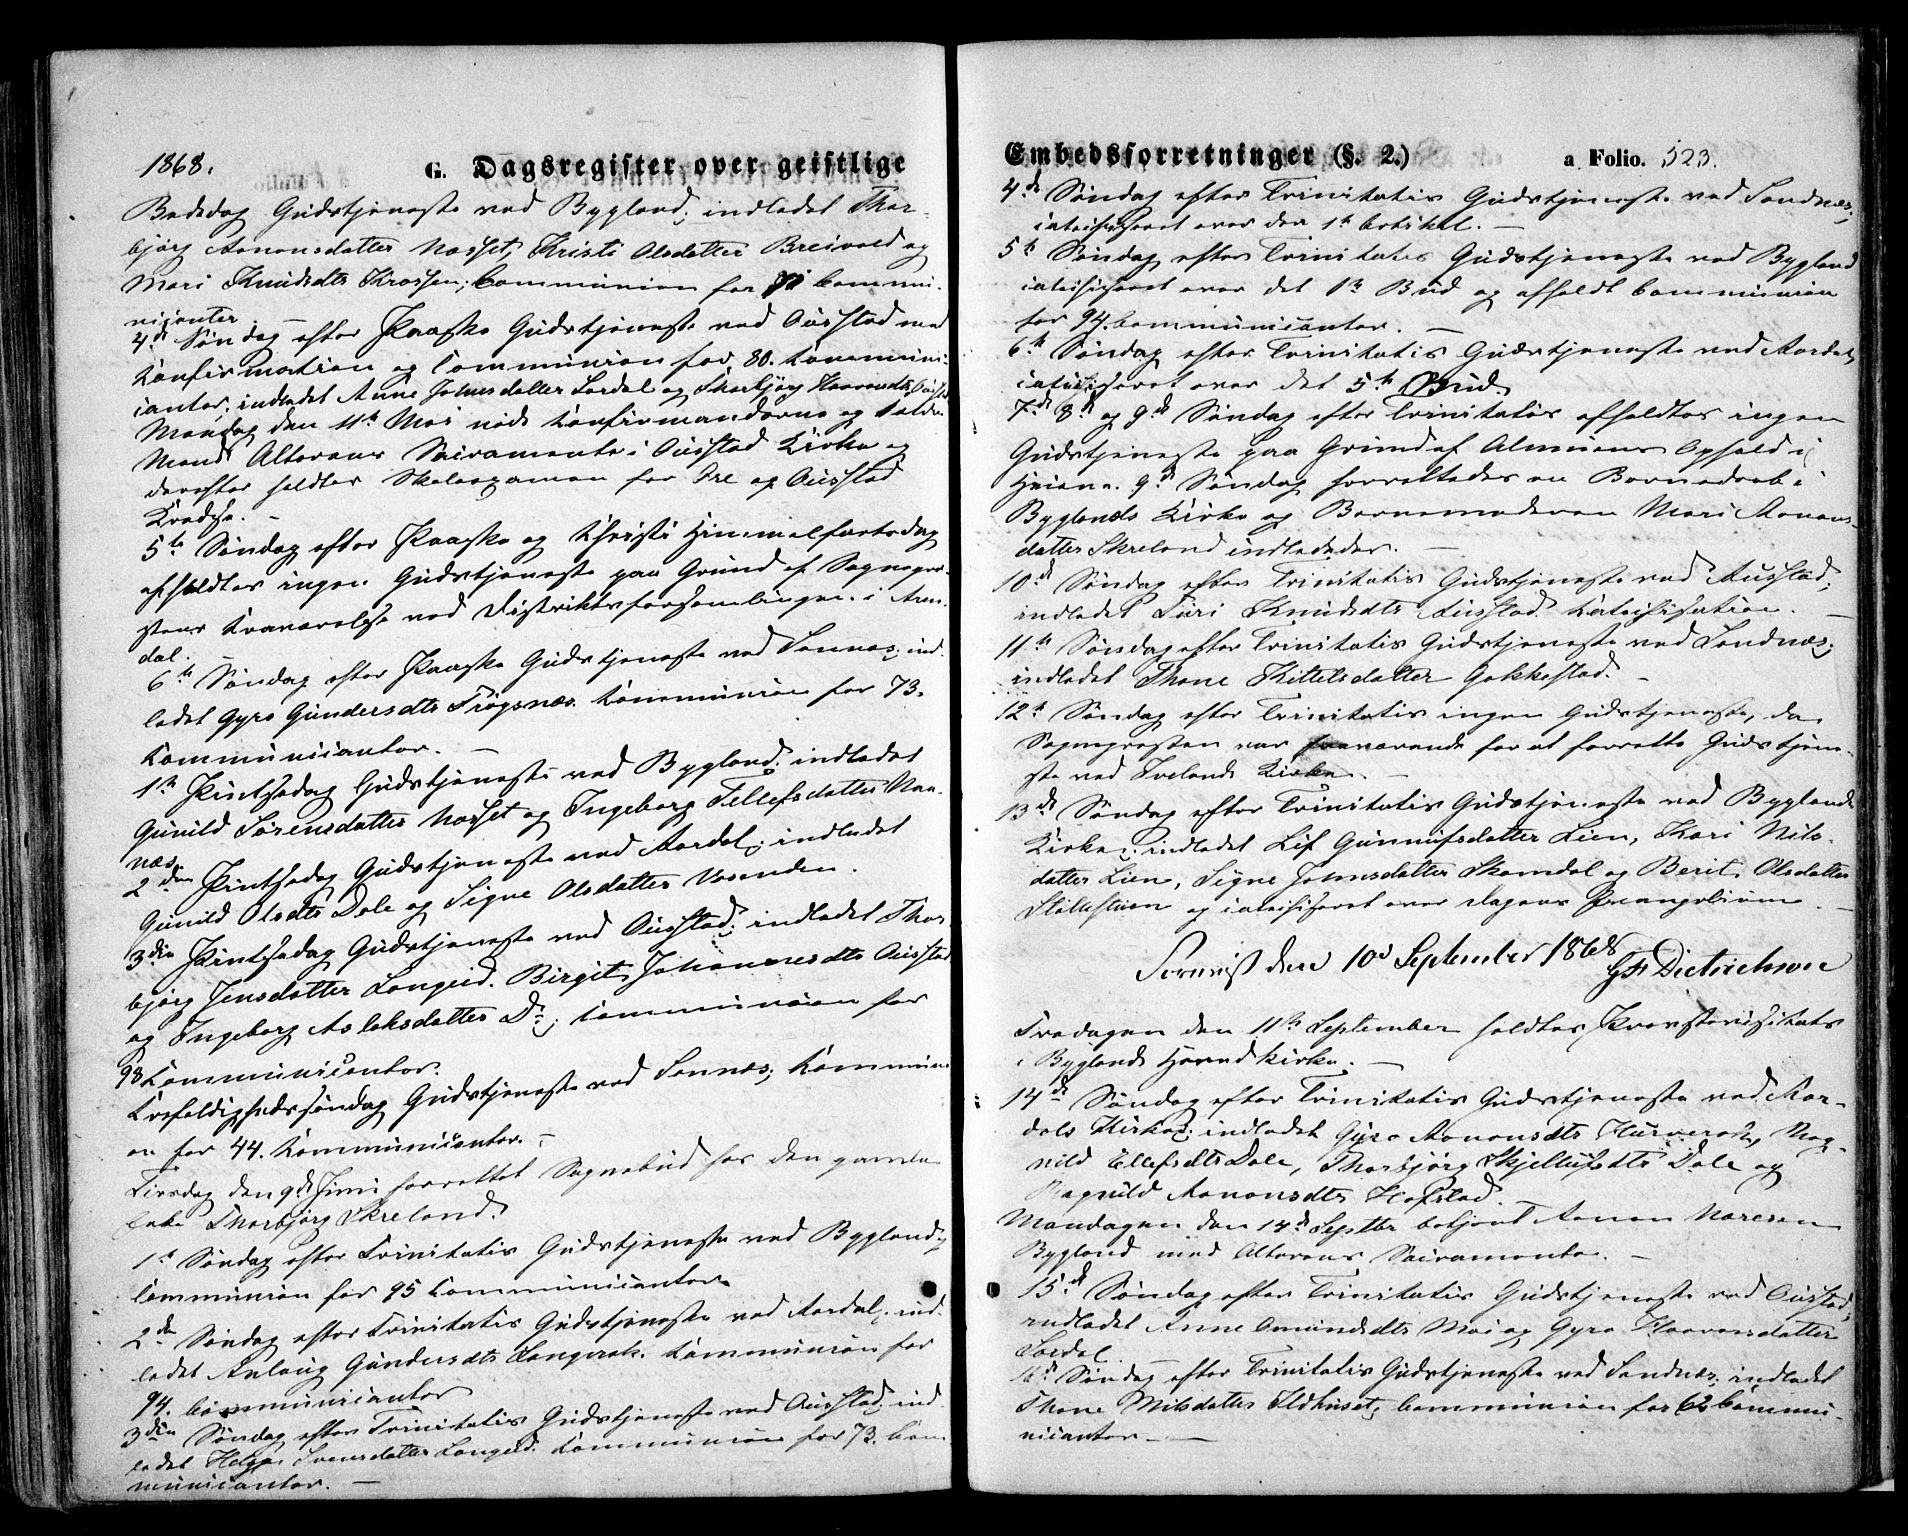 1868. G. Dagsregister over geistlige
Bededag Gudstjeneste ved Bygland; indledet Thor-
bjørg Aanonsdatter Næsset, Kristi Olsdatter Breivold og
Mari Knudsdtr Krossen; Communion for Communi-
nicanter —
4de Søndag efter Paaske Gudstjeneste ved Austad med
Konfirmation og Communion for 80. Kommuni-
canter, indledet Anne Johnsdatter Sordal og Thorbjørg Haavorsdtr
Mandag den 11te Mai nöde Konfirmanderne og
Alterens Sacramente i Austad Kirke og
derefter holdtes Skoleexamen for og Austad
Kredse. —
5te Søndag efter Paaske og Christi Himmelfartsdag
afholdtes ingen Gudstjeneste paa Grund af Sognepræ-
stens Fraværelse ved Distriktsforsamlingen i Aren-
dal.
6te Søndag efter Paaske Gudstjeneste ved Sannes; ind-
ledet Gyro Gundersdtr Frøgsnæs. Kommunion for 73.
Kommunicanter. —
1ste Pintsedag Gudstjeneste ved Bygland; indledet
Gunild Sørensdatter Næsset og Ingeborg Tellefsdatter
næs.
2den Pintsedag Gudstjeneste ved Aardal; indledet
Gunild Olsdtr Dale og Signe Olsdatter Vasenden.
3die Pintsedag Gudstjeneste ved Austad; indledet Thor
bjørg Jensdatter Langeid, Birgit Johannesdtr Austad
og Ingeborg Aslaksdatter Do; Communion for
98 Kommunicanter.
Trefoldighedssöndag Gudstjeneste ved Sannæs; Kommuni
on for 44. Kommunicanter. —
Tirsdag den 9de Juni forrettet Sognebud hos den gamle
Thorbjørg Skreland.
1ste Søndag efter Trinitatis Gudstjeneste ved Bygland;
Communion for 95 Communicanter.
2den Søndag efter Trinitatis Gudstjeneste ved Aardal; ind-
ledet Anlaug Gundersdtr Langerak. Kommunion for
94. Communicanter
3die Søndag efter Trinitatis Gudstjeneste ved Austad; ind
ledet Helge Svensdatter Langeid. Kommunion for 73. Com
municanter. —
Embedsforretninger (§. 2.) a Folio. 523.
4de Søndag efter Trinitatis Gudstjeneste ved Sandnæs;
cateciseret over den 1ste Artikel. —
5te Søndag efter Trinitatis Gudstjeneste ved Bygland
cateciseret over det 1ste Bud og afholdt Communion
for 94. Communicanter. —
6te Søndag efter Trinitatis Gudstjeneste ved Aardal,
cateciseret over det 5te Bud.
7de 8de og 9de Søndag efter Trinitatis afholdtes ingen
Gudstjeneste paa Grund af Almuens Ophold i
Heiene. 9de Søndag forrettedes en Barnedaab i
Byglands Kirke og Barnemoderen Mari Aanons-
datter Skreland indlededes. —
10de Søndag efter Trinitatis Gudstjeneste ved Austad;
indledet Turi Knudsdtr Austad. Katechisation. —
11te Søndag efter Trinitatis Gudstjeneste ved Sandnæs;
indledet Thone Kittelsdatter Gakkestad. —
12te Søndag efter Trinitatis ingen Gudstjeneste, da
Sognepresten var fraværende for at forrette Gudstjene-
ste ved Ivelands Kirke. —
13de Søndag efter Trinitatis Gudstjeneste ved Byglands
Kirke; indledet Lif Gunnufsdatter Lien, Kari Nils-
datter Lien, Signe Johnsdatter Skamdal og Berit Olsdatter
Stallestuen og cateciseret over Dagens Evangelium. —
den 10de September 1868 Dietrichson
Fredagen den 11te September holdtes Provstevisitats
i Byglands Hovedkirke. —
14de Søndag efter Trinitatis Gudstjeneste ved Aar-
dals Kirke; indledet Gyro Aanonsdtr Hurverak, Mag-
nild Ellefsdtr Dale, Thorbjørg Skjellufsdtr Dale og
Ragnild Aanonsdtr Hofstad.
Mandagen den 14de Septbr betjent Aanon
Bygland med Alterens Sacramente. —
15de Søndag efter Trinitatis Gudstjeneste ved Austad,
indledet Anne Omundsdtr Moi og Gyro Haavorsdatter
Sordal. —
16de Søndag efter Trinitatis Gudstjeneste ved Sandnæs; indledet
Thone Nilsdatter Ildhuset; Communion for 62 Commu-
nicanter —